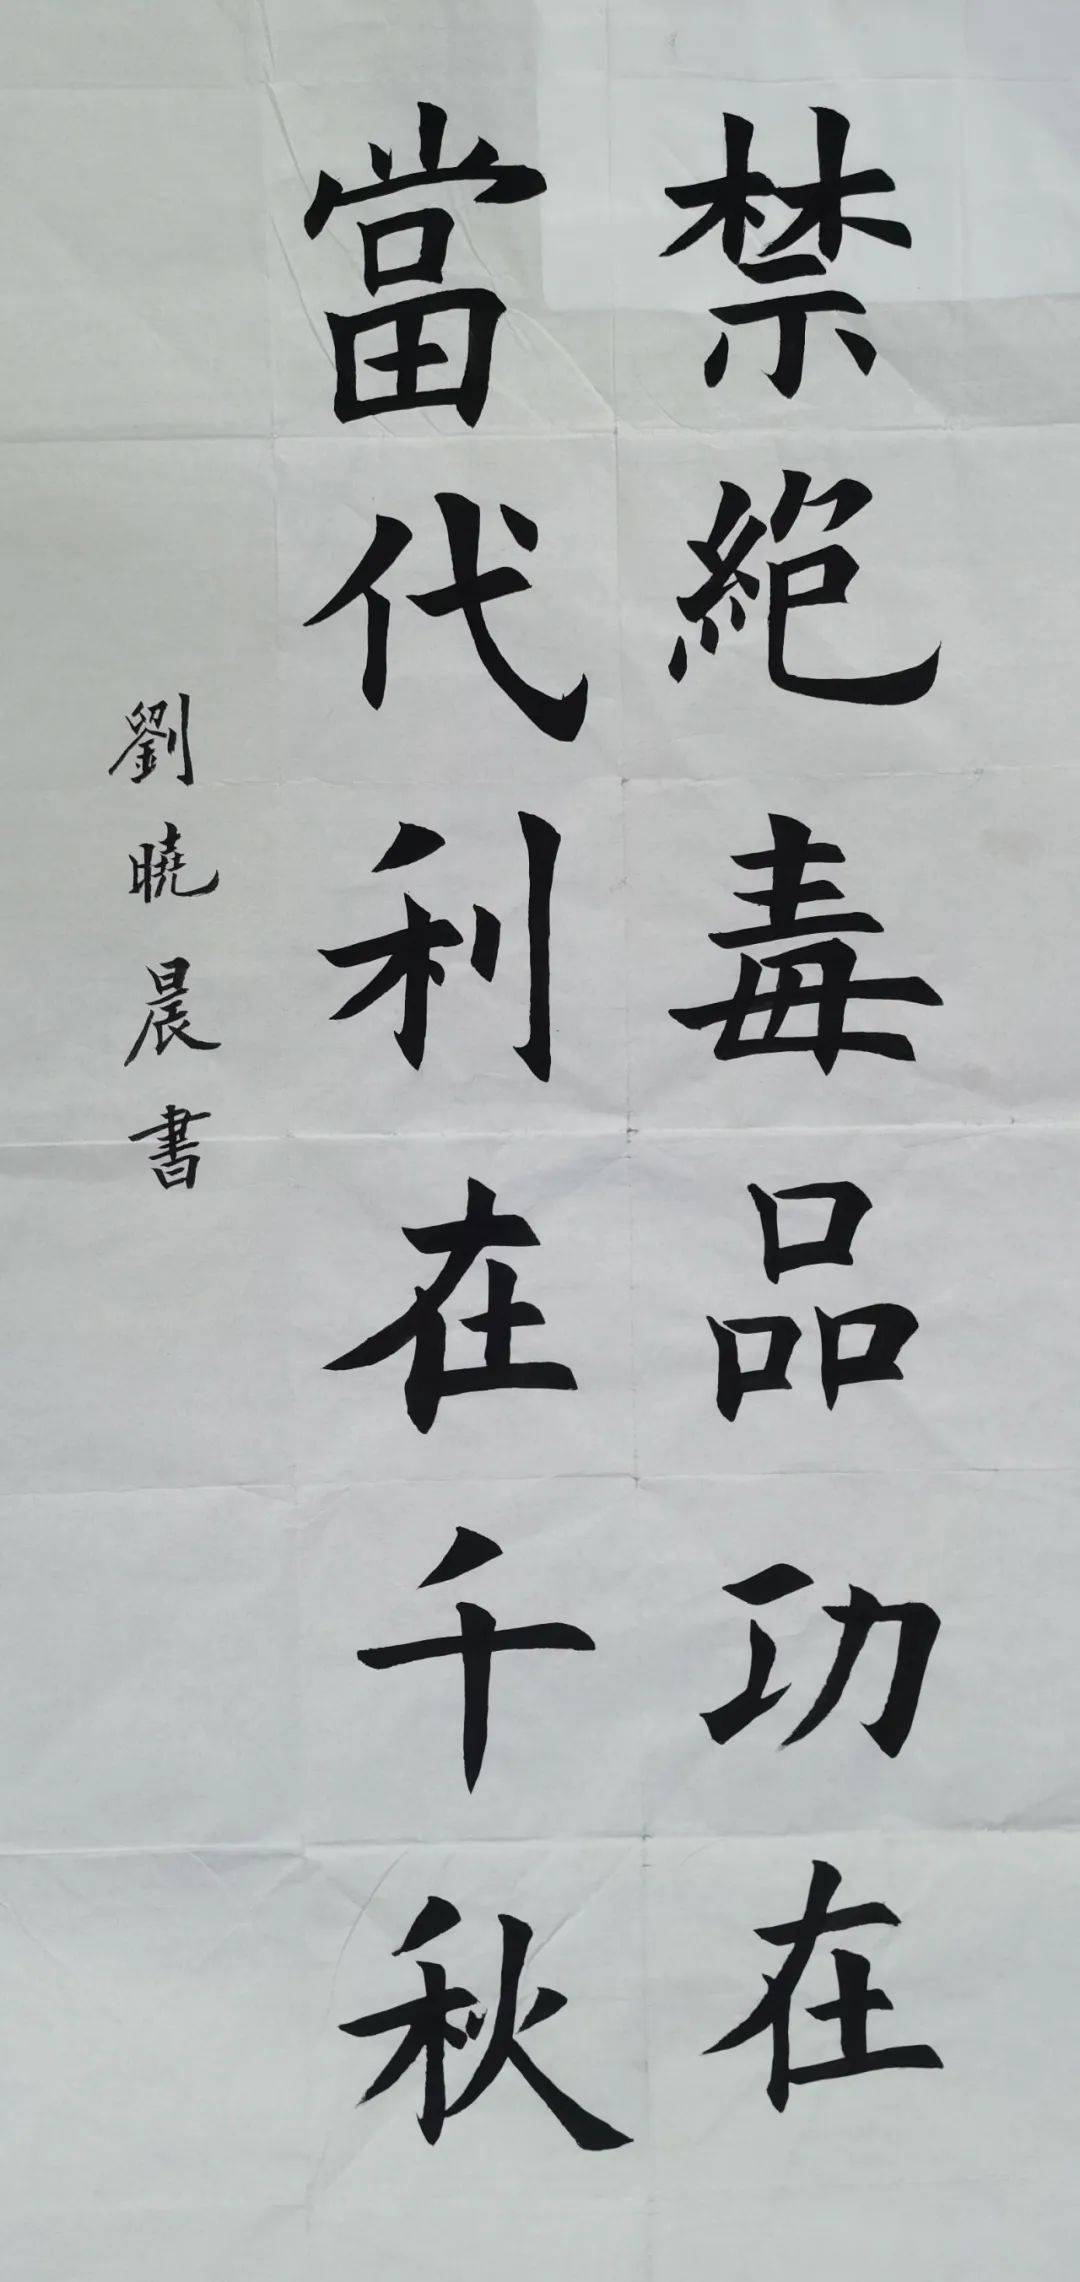 禁絕毒品功在
當代利在千秋
劉曉晨書